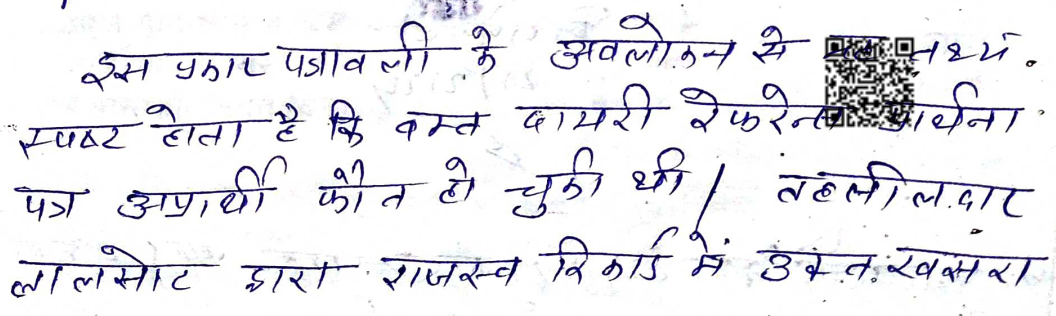 इस प्रकार पत्रावली के अवलोकन से यह तथ्य
स्पष्ट होता है कि वक्त दायरी रेफरेन्स प्रार्थना
पत्र अप्रार्थी फौत हो चुकी थी। तहसीलदार
लालसोट द्वारा राजस्व रिकार्ड में उक्त खसरा